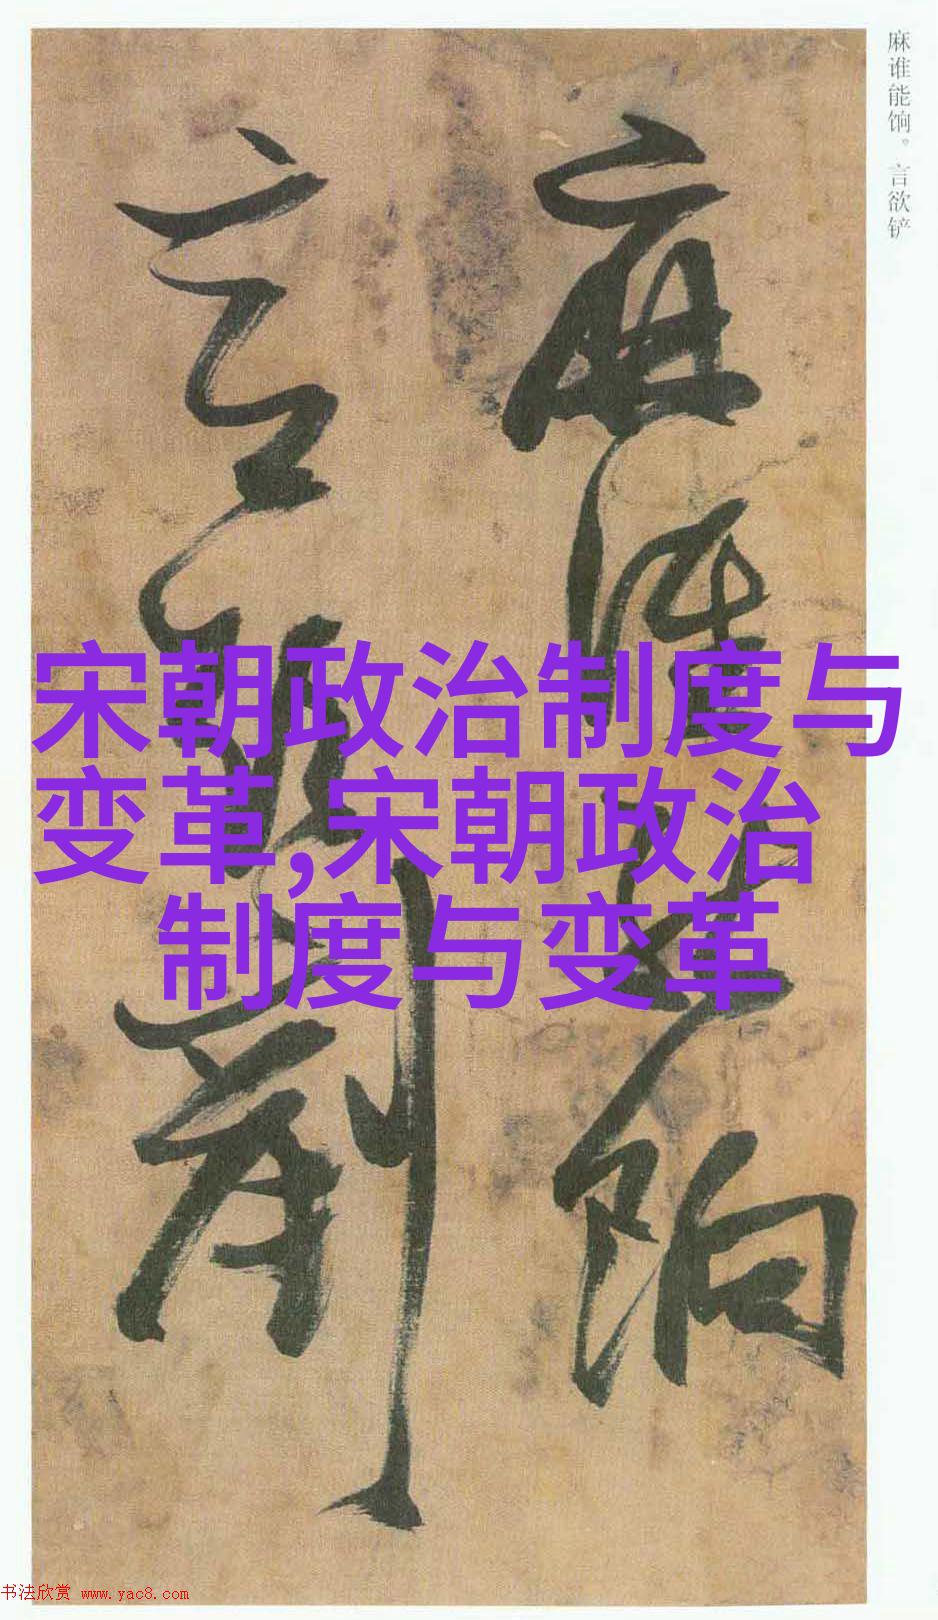 麻谁能饷。言欲铲
麻谁能饷
言欲剷
宋朝政治制度与
变革,宋朝政治
制度与变革
书法欣赏 www.yac8.com